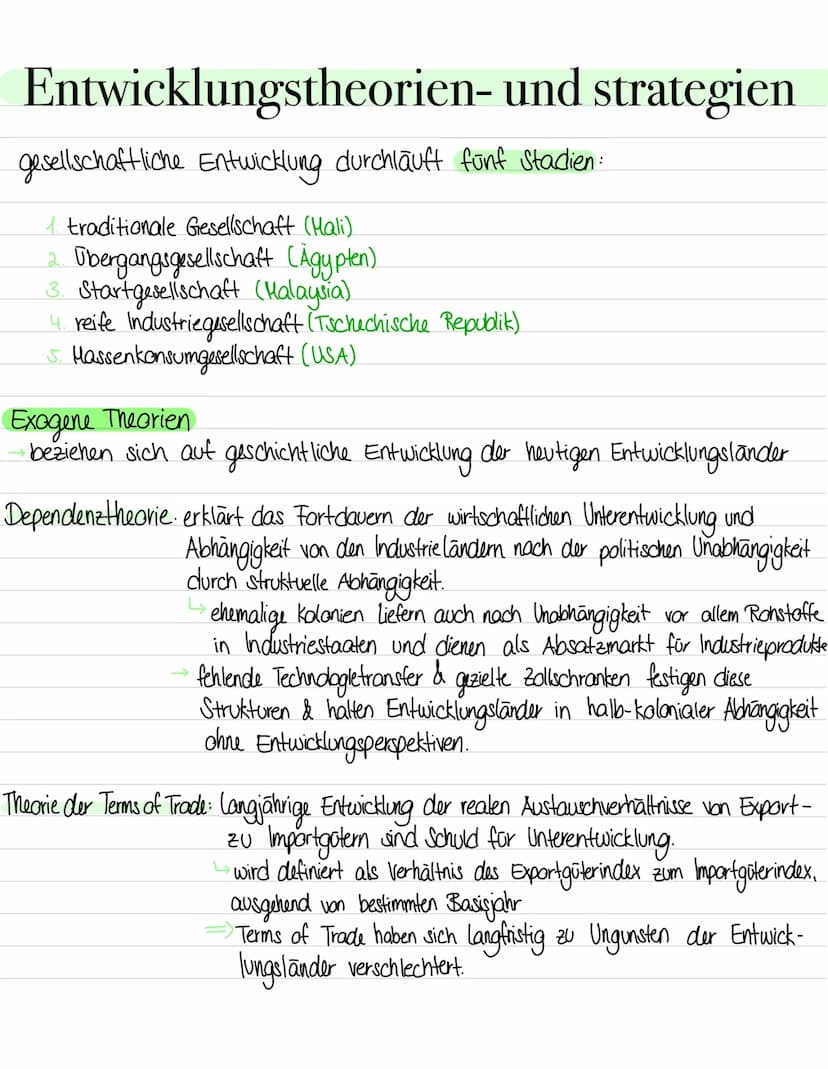 Entwicklungstheorien- und strategien
gesellschaftliche Entwicklung durchläuft fünf Stadien:
1. traditionale Gesellschaft (Mali)
2. Übergangsgesellschaft (Ägypten)
3. Startgesellschaft (Malaysia)
4. reife Industriegesellschaft (Tschechische Republik)
5. Massenkonsumgesellschaft (USA)
Exogene Theorien
→ beziehen sich auf geschichtliche Entwicklung der heutigen Entwicklungsländer
Dependenztheorie: erklärt das Fortdauern der wirtschaftlichen Unterentwicklung und
Abhängigkeit von den Industrieländern nach der politischen Unabhängigkeit
durch struktuelle Abhängigkeit.
↳ ehemalige Kolonien liefern auch nach Unabhängigkeit vor allem Rohstoffe
in Industriestaaten und dienen als Absatzmarkt für Industrieprodukte
→ fehlende Technologietransfer & gezielte Zollschranken festigen diese
Strukturen & halten Entwicklungsländer in halb-kolonialer Abhängigkeit
ohne Entwicklungsperspektiven.
Theorie der Terms of Trade: langjährige Entwicklung der realen Austauschverhältnisse von Export-
zu Importgütern sind Schuld für Unterentwicklung.
↳ wird definiert als Verhältnis des Exportgüterindex zum Importgüterindex,
ausgehend von bestimmten Basisjahr
⇒ Terms of Trade haben sich langfristig zu Ungunsten der Entwick-
lungsländer verschlechtert.